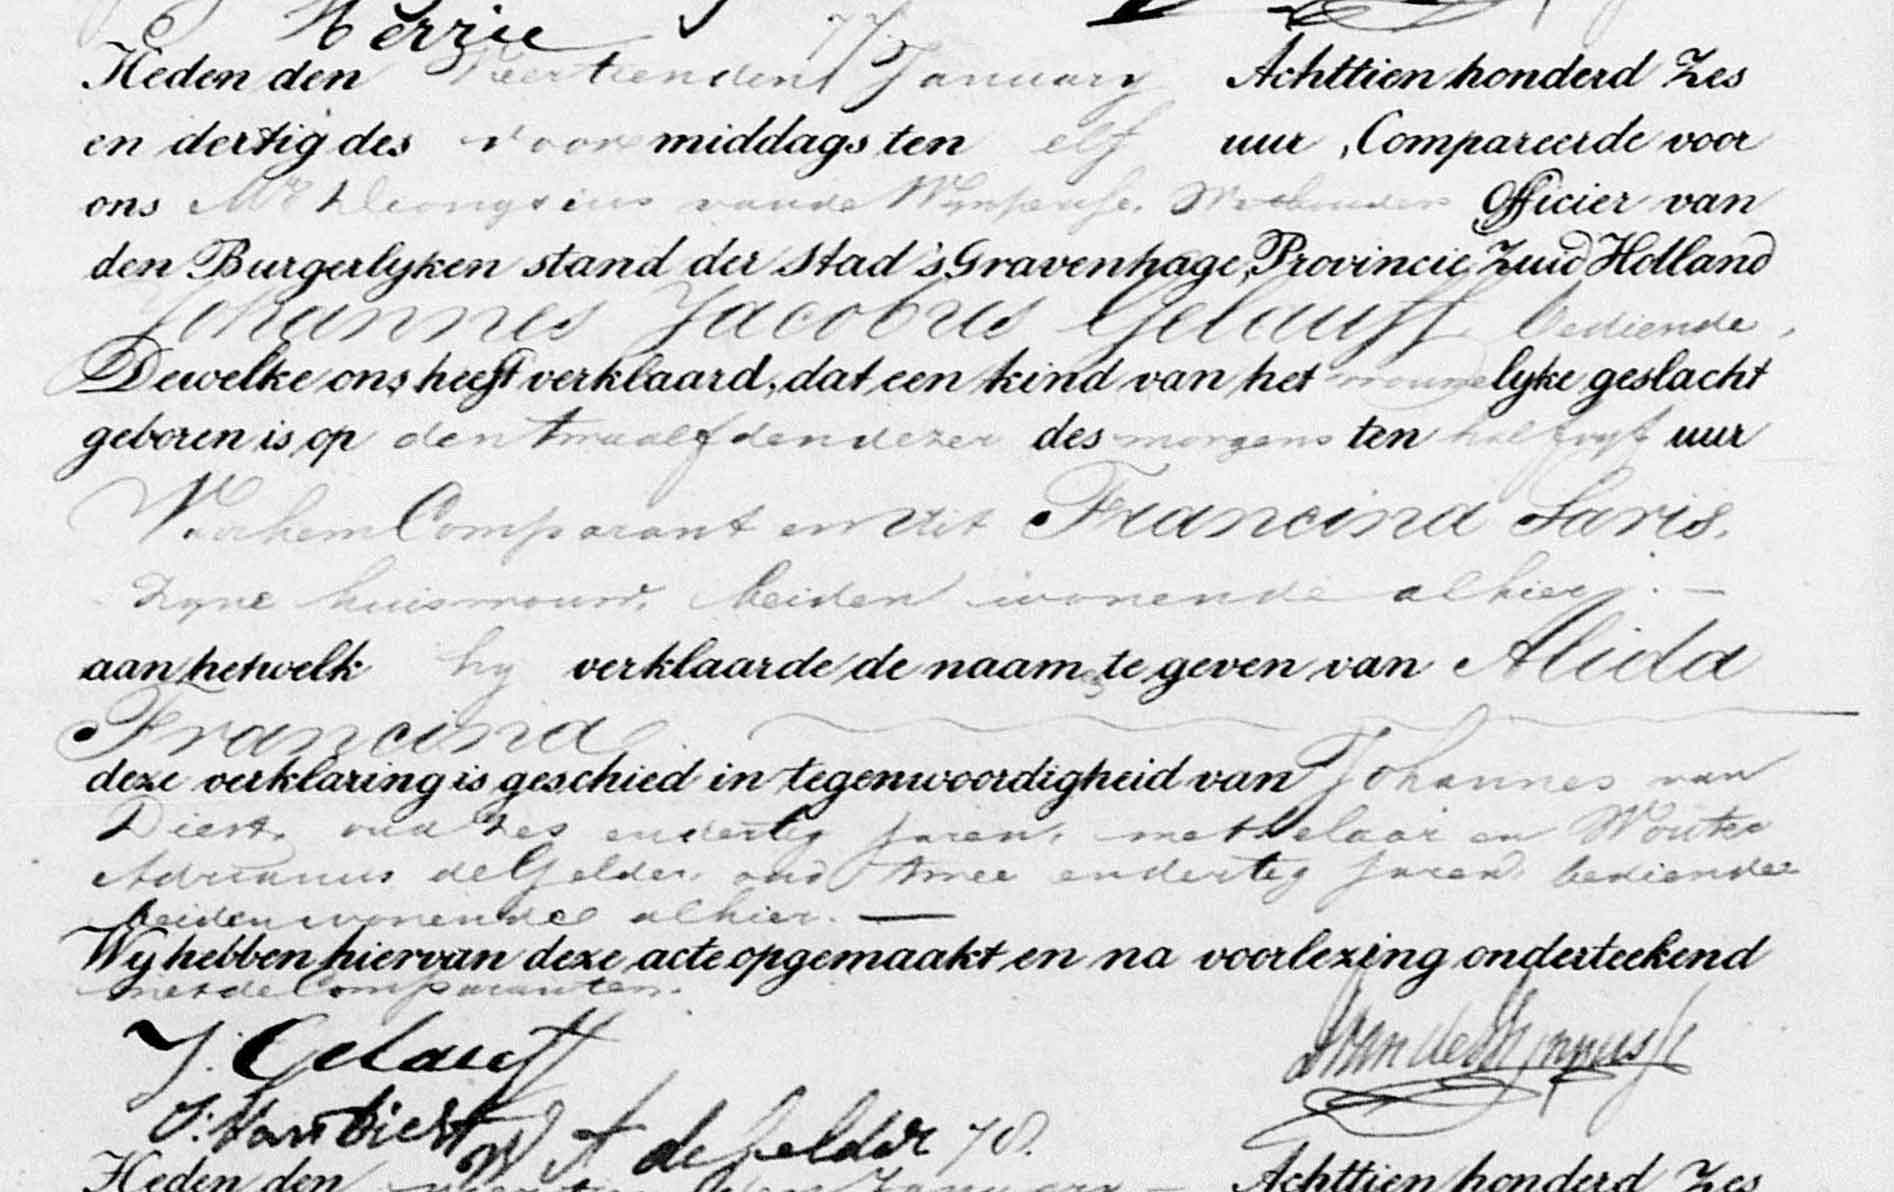 Herrie 77.
Heden den Veertienden January Achttien honderd Zes
en dertig des voor middags ten elf uur, Compareerde voor
ons Mr Dionysius van de Wynpersse, Wethouder Officier van
den Burgerlyken stand der Stad 's Gravenhage, Provincie Zuid Holland
Johannes Jacobus Gelauff, bediende,
Dewelke ons heeft verklaard, dat een kind van het vrouwelyke geslacht
geboren is op den twaalfden dezer des morgens ten half vyf uur
Van hem Comparant en uit Francina Saris,
zyne huisvrouw, beiden wonende alhier. —
aan hetwelk hy verklaarde de naamen te geven van Alida
Francina
deze verklaring is geschied in tegenwoordigheid van Johannes van
Diest, oud zes en dertig jaren, metselaar en Wouter
Adrianus de Gelder, oud twee en dertig jaren, bediende
beiden wonende alhier. —
Wy hebben hiervan deze acte opgemaakt en na voorlezing onderteekend
met de Comparanten.
J. Gelauff
J: van Diest
W A de Gelder 78.
Heden den Achttien honderd Zes